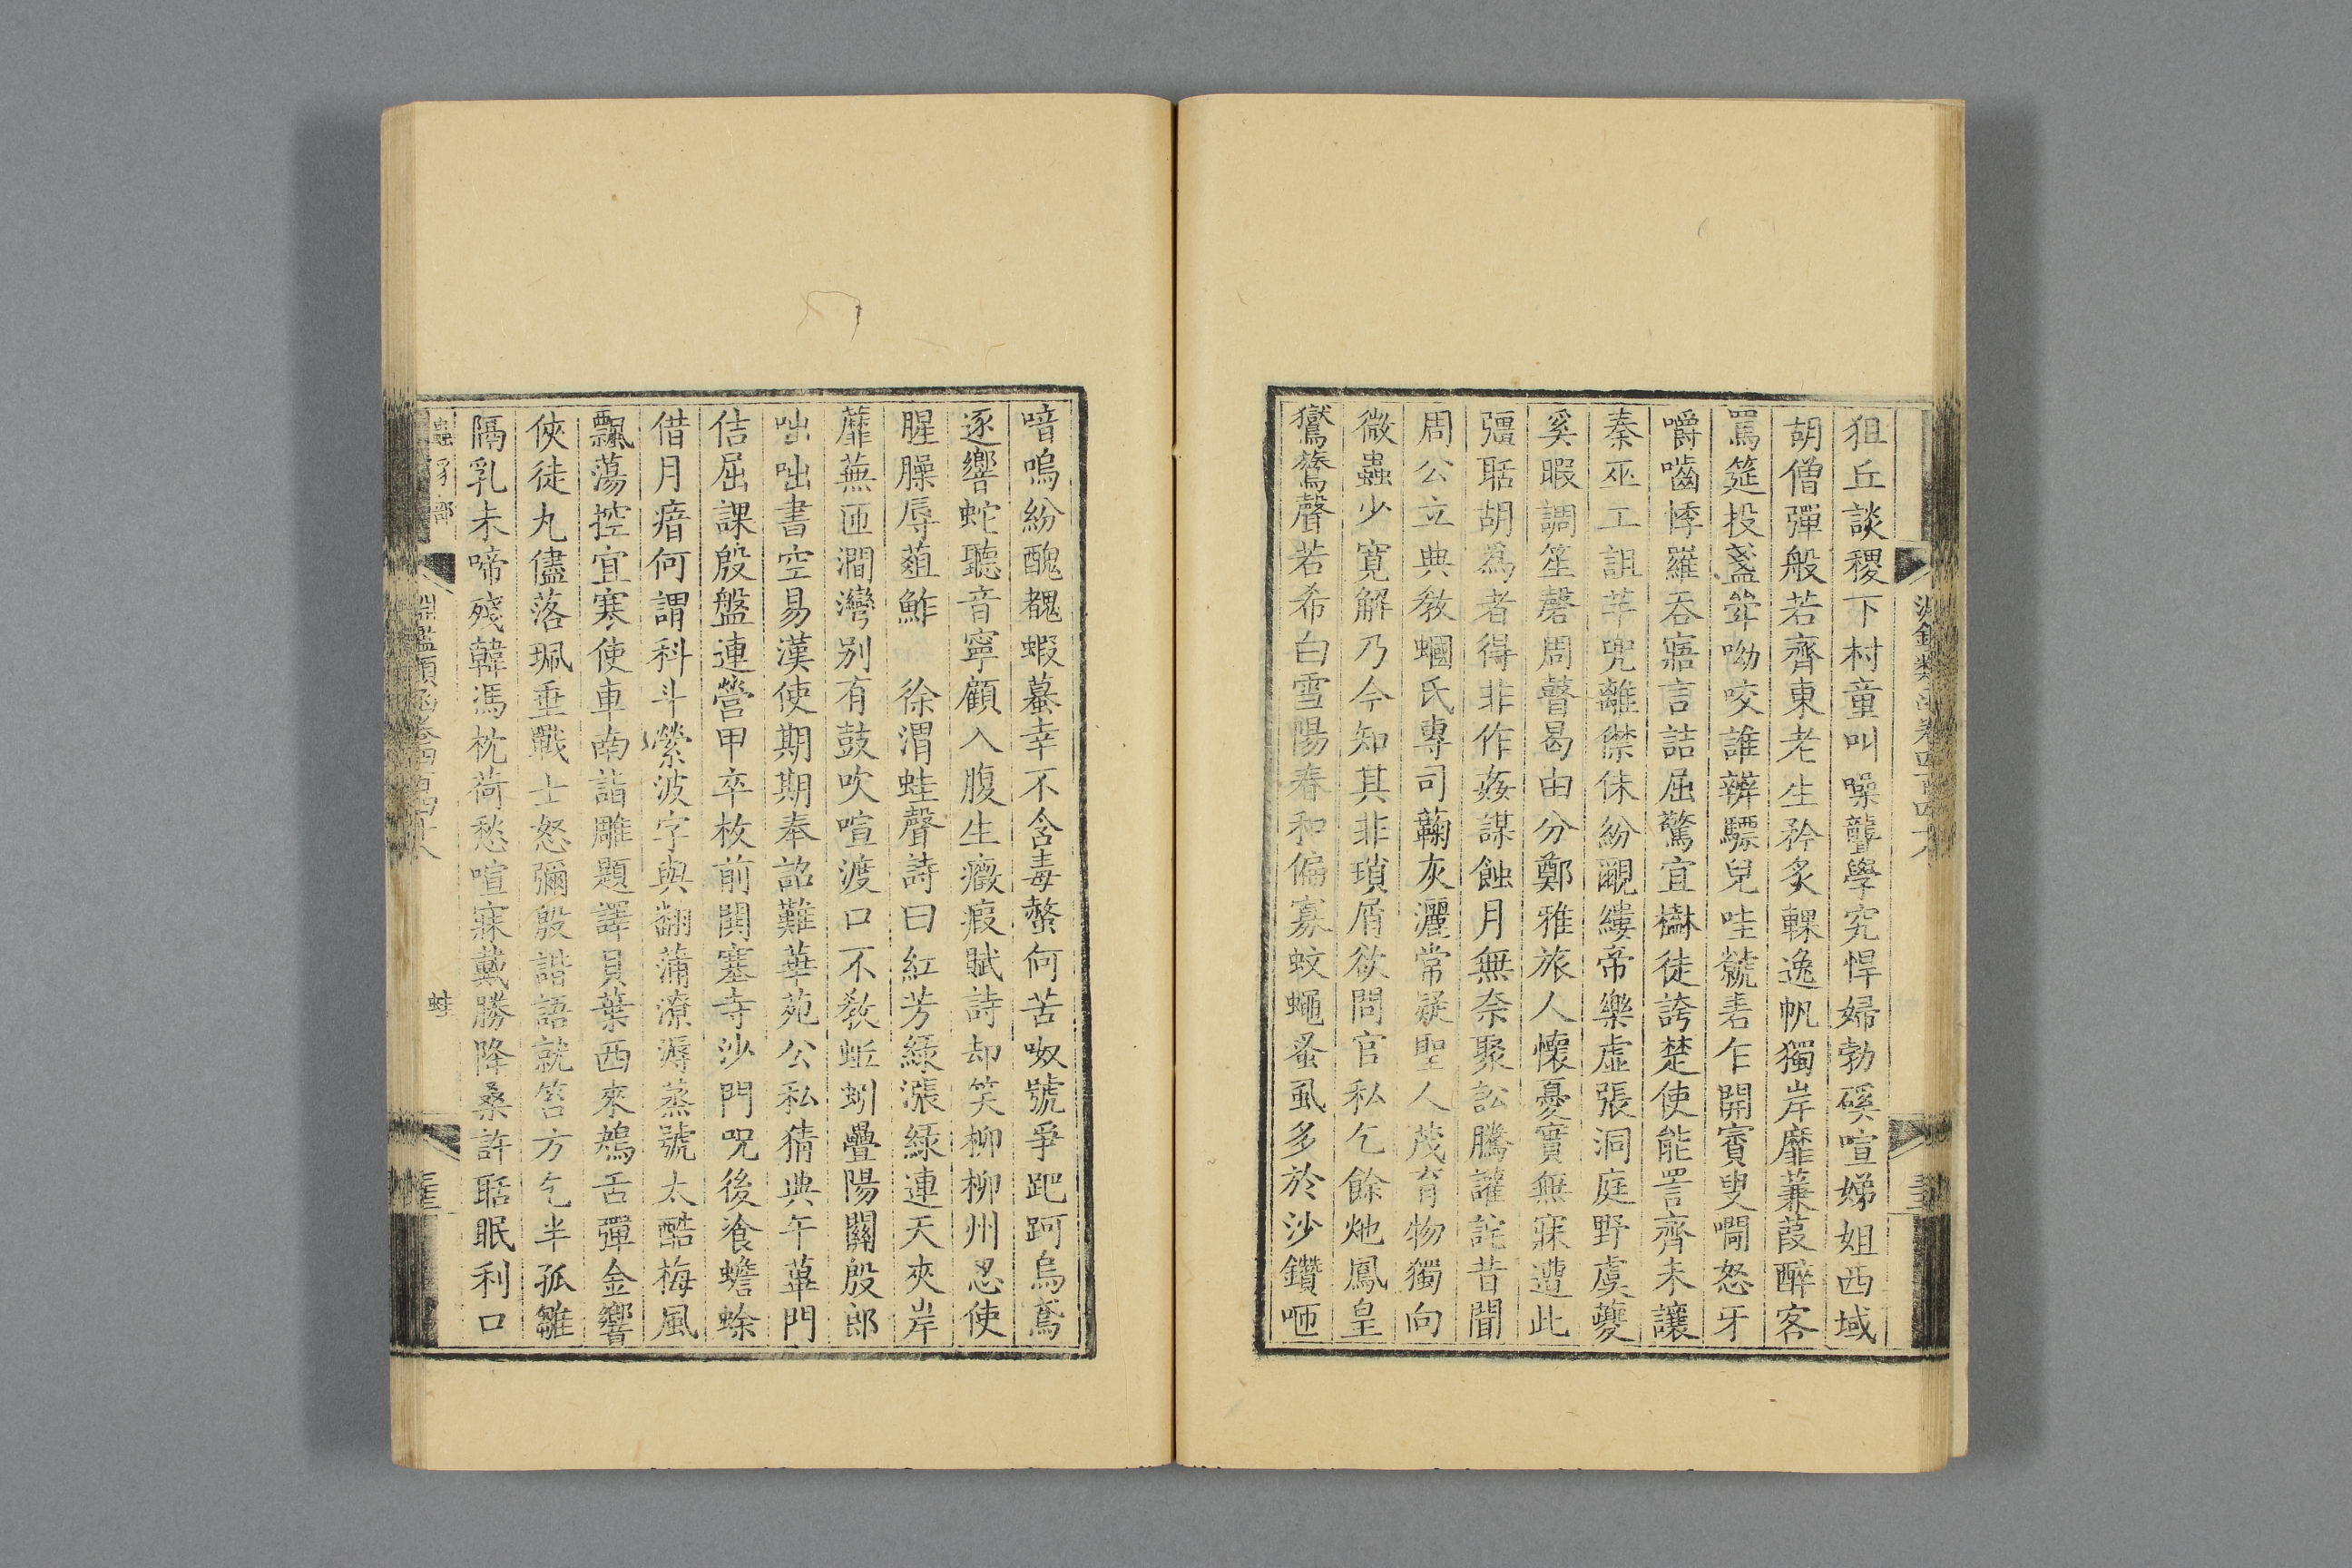 狙丘談稷下村童叫噪聾學究悍婦勃磎喧娣姐西域
胡僧彈般若齊東老生矜炙輠逸帆獨岸靡蒹葭醉客
罵筵投盞斝呦咬誰辨驃兒哇虩砉乍開賓叟嘈怒牙
嚼嚙悸羅吞寤言詰屈驚宜櫾徒誇楚使能詈齊未讓
秦巫工詛芉兜離僸佅紛覼縷帝樂虛張洞庭野虞夔
奚暇調笙磬周瞽曷由分鄭雅旅人懷憂實無寐遭此
彊聒胡為者得非作姦謀蝕月無奈聚訟騰讙詫昔聞
周公立典教蟈氏專司蘜灰灑常疑聖人茂育物獨向
微蟲少寬解乃今知其非瑣屑欲問官私乞餘灺鳳皇
鸑鷟聲若希白雪陽春和偏寡蚊蠅蚤虱多於沙鑽咂
喑嗚紛醜䰩蝦蟇幸不含毒螫何苦呶號爭跁跒烏鳶
逐響蛇聽音寧顧入腹生癥瘕賦詩却笑柳柳州忍使
腥臊辱菹鮓　徐渭蛙聲詩曰紅芳綠漲綠連天夾岸
蘼蕪匝澗灣別有鼓吹喧渡口不教蚯蚓疊陽關殷郎
咄咄書空易漢使期期奉詔難華苑公私猜典午蓽門
佶屈課殷盤連營甲卒枚前閧塞寺沙門呪後飡蟾蜍
借月瘖何謂科斗縈波字與翻蒲潦溽蒸號太酷梅風
飄蕩控宜寒使車南詣雕題譯貝葉西來鴂舌彈金響
俠徒丸儘落珮垂戰士怒彌殷諧語就笞方乞半孤雛
隔乳未啼殘韓馮枕荷愁喧寐戴勝降桑許聒眠利口
蟲豸部
蛙